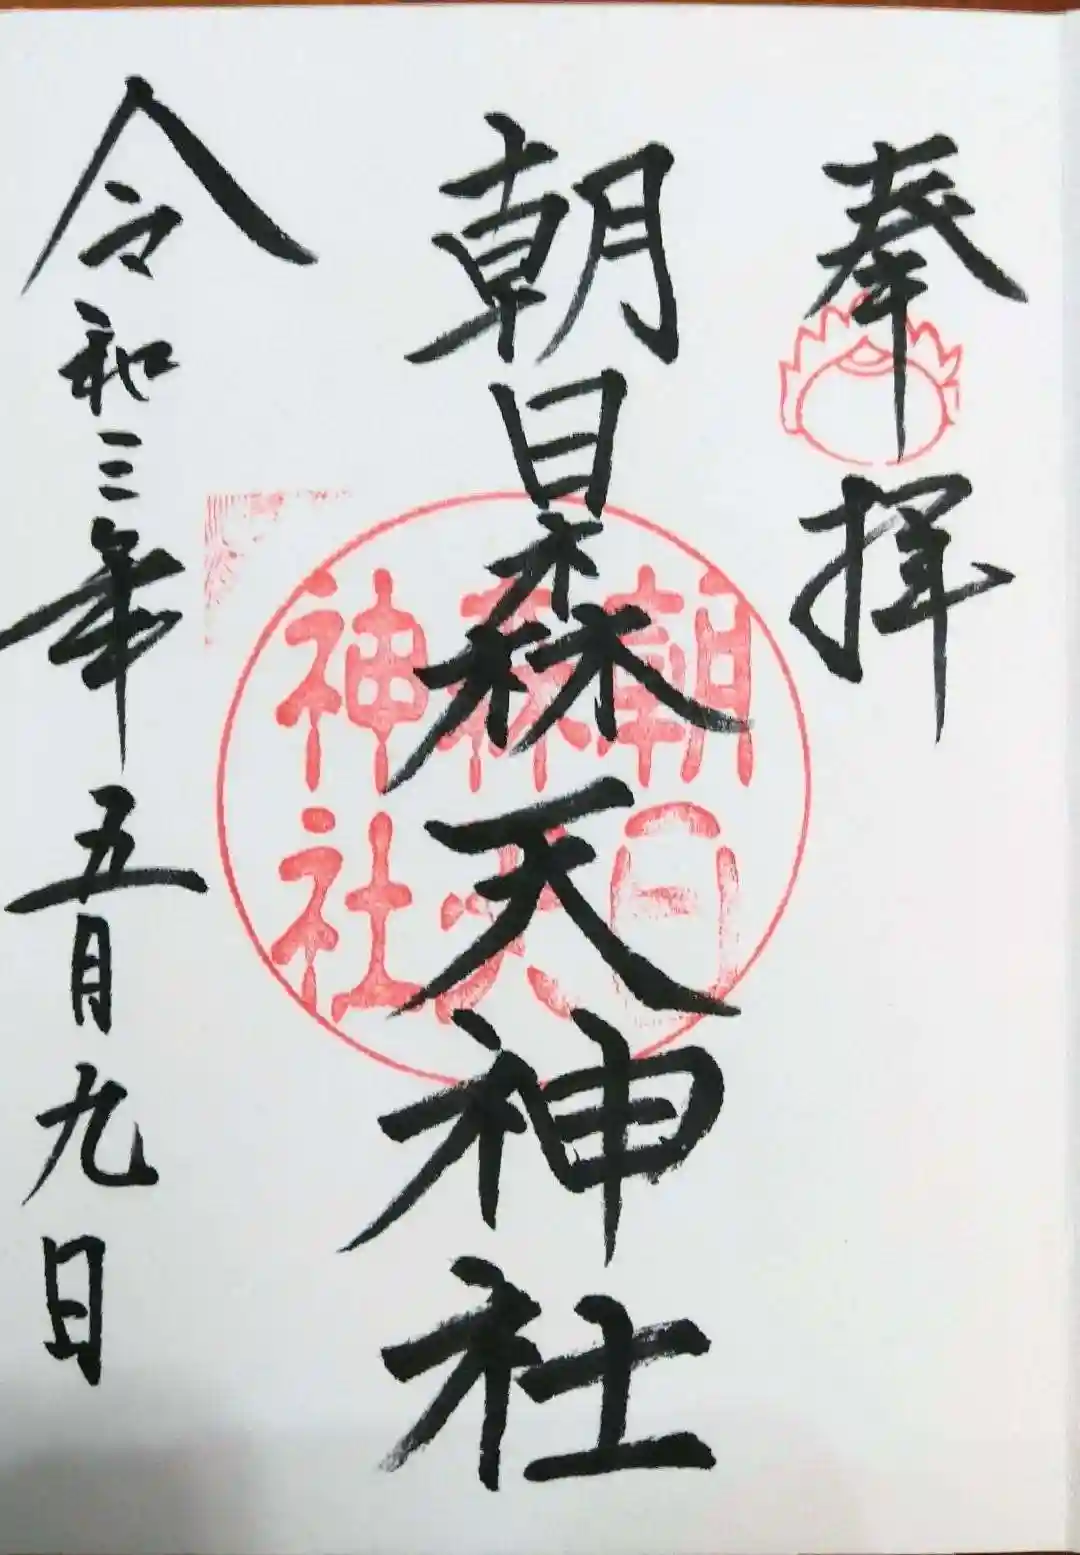 奉拝
朝日森天神社
朝日
森天
神社
令和三年五月九日